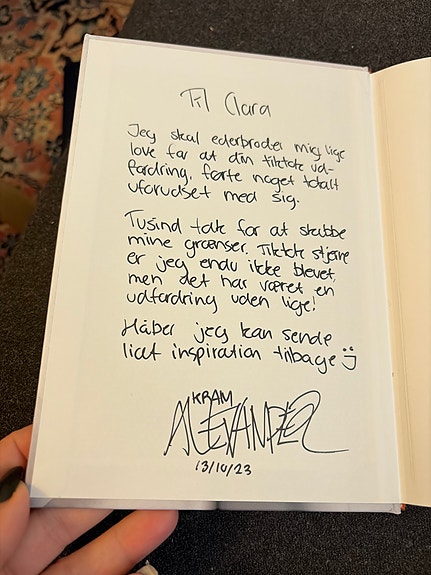 Til Clara
Jeg skal ederbrodes mig lige
love for at din tiktok ud-
fordring, førte noget totalt
uforudset med sig.
Tusind tak for at skubbe
mine grænser. Tiktok stjerne
er jeg endu ikke blevet,
men det har været en
udfordring uden lige!
Håber jeg kan sende
lidt inspiration tilbage :)
KRAM
ALEXANDER
13/10/23